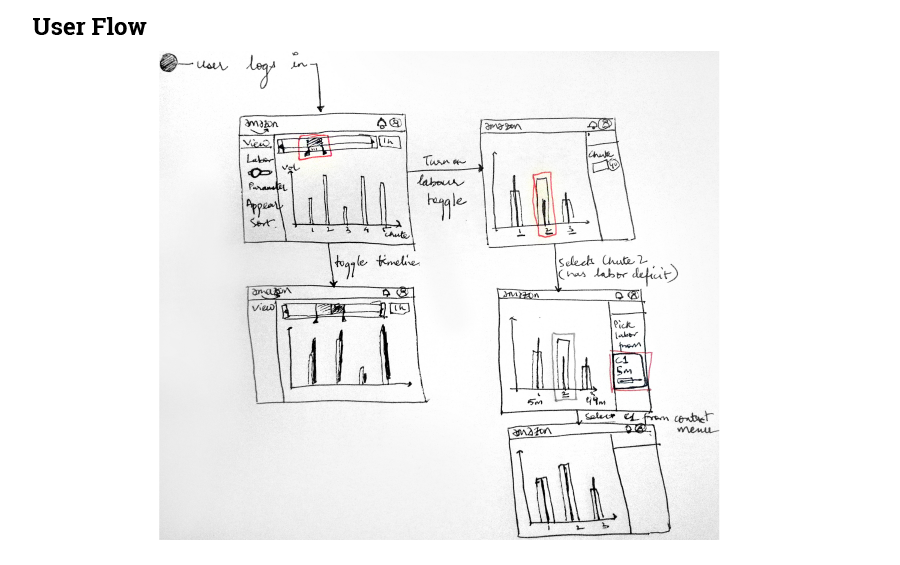 User Flow
user logs in
amazon
View
Labor
Parameter
Appear
Sort
1h
vol
1 2 3 4 5
chute
Turn on
labour
toggle
amazon
Chute
1 2 3
toggle timeline
amazon
View
1h
Selects Chute 2
(has labor deficit)
amazon
Pick
labor
from
C1
5m
1 2 3
5m 44m
Select C1 from context
menu
amazon
1 2 3